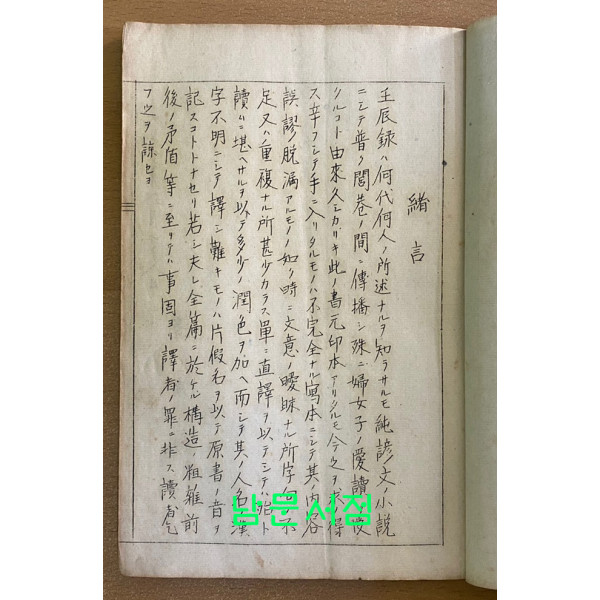 緒言
壬辰録ハ何代何人ノ所述ナルヲ知ラサルモ純諺文ノ小説
ニシテ普ク閭巷ノ間ニ傳播シ殊ニ婦女子ノ愛讀
タルコト由來久シカリキ此ノ書元印本アリタルモ今之ヲ求得
ス辛フシテ手ニ入リタルモノハ不完全ナル寫本ニシテ其ノ内容
誤謬ノ脱漏アルモノノ如ク時ニ文意ノ曖昧ナル所字句ノ不
足又ハ重複ナル所甚少カラス單ニ直譯ヲ以テシテハ殆ト
讀ムニ堪ヘサルヲ以テ多少ノ潤色ヲ加ヘ而シテ其ノ人名漢
字不明ニシテ譯シ難キモノハ片假名ヲ以テ原書ノ音ヲ
記スコトトナセリ若シ夫レ全篇ニ於ケル構造ノ粗雜前
後ノ矛盾等ニ至リテハ事固ヨリ譯者ノ罪ニ非ス讀者乞
フ之ヲ諒セヨ
남문서점